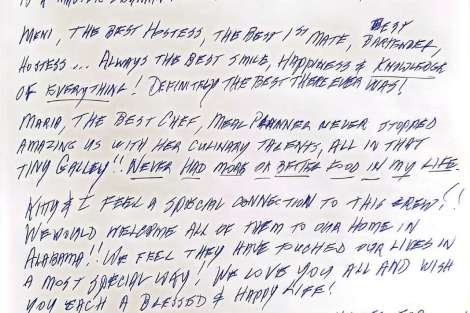 Meni, the best hostess, the best 1st mate, best bartender,
hostess... Always the best smile, happiness & knowledge
of everything! Definitely the best there ever was!
Maria, the best chef, meal planner never stopped
amazing us with her culinary talents, all in that
tiny galley!! Never had more or better food in my life.
Kitty & I feel a special connection to this crew!!
We would welcome all of them to our home in
Alabama!! We feel they have touched our lives in
a most special way! We love you all and wish
you each a blessed & happy life!